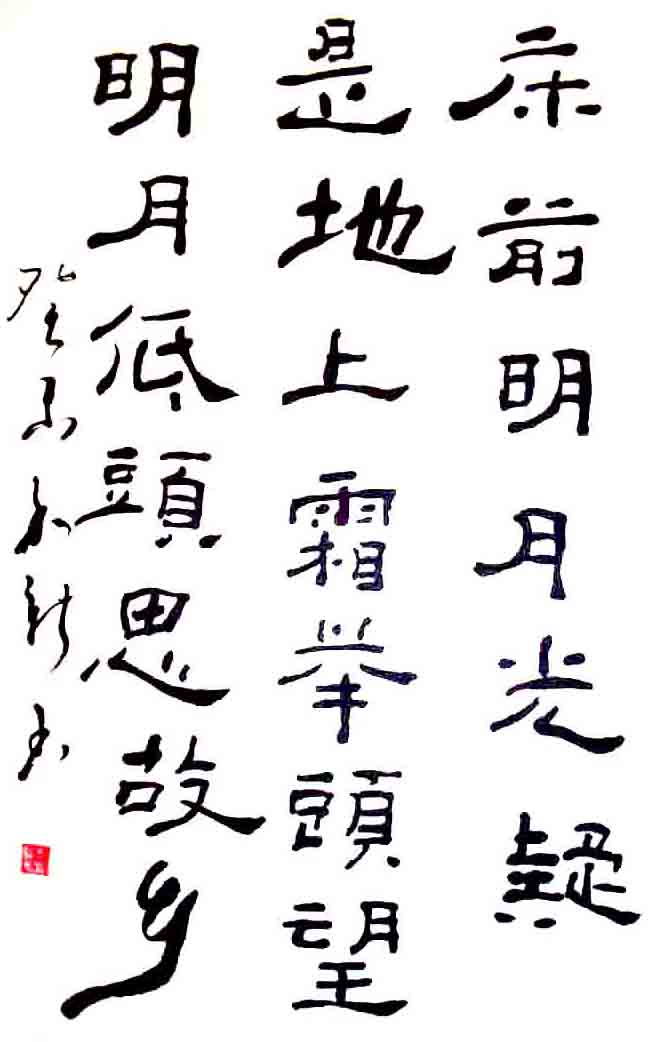 床前明月光疑
是地上霜举頭望
明月低頭思故乡
癸书